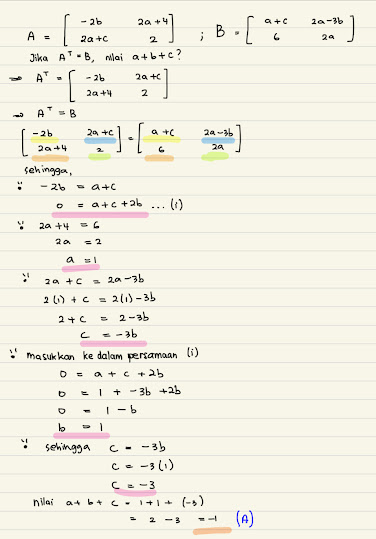 A = [ -2b 2a+4 ; 2a+c 2 ] ; B = [ a+c 2a-3b ; 6 2a ]
Jika Aᵀ = B, nilai a+b+c?
⇒ Aᵀ = [ -2b 2a+c ; 2a+4 2 ]
⇒ Aᵀ = B
[ -2b 2a+c ; 2a+4 2 ] = [ a+c 2a-3b ; 6 2a ]
sehingga,
∵ -2b = a+c
0 = a+c+2b ... (i)
∵ 2a+4 = 6
2a = 2
a = 1
∵ 2a+c = 2a-3b
2(1) + c = 2(1) -3b
2+c = 2-3b
c = -3b
∵ masukkan ke dalam persamaan (i)
0 = a + c + 2b
0 = 1 + -3b +2b
0 = 1 - b
b = 1
∵ sehingga c = -3b
c = -3(1)
c = -3
nilai a+b+c = 1+1+(-3)
= 2 -3 = -1 (A)